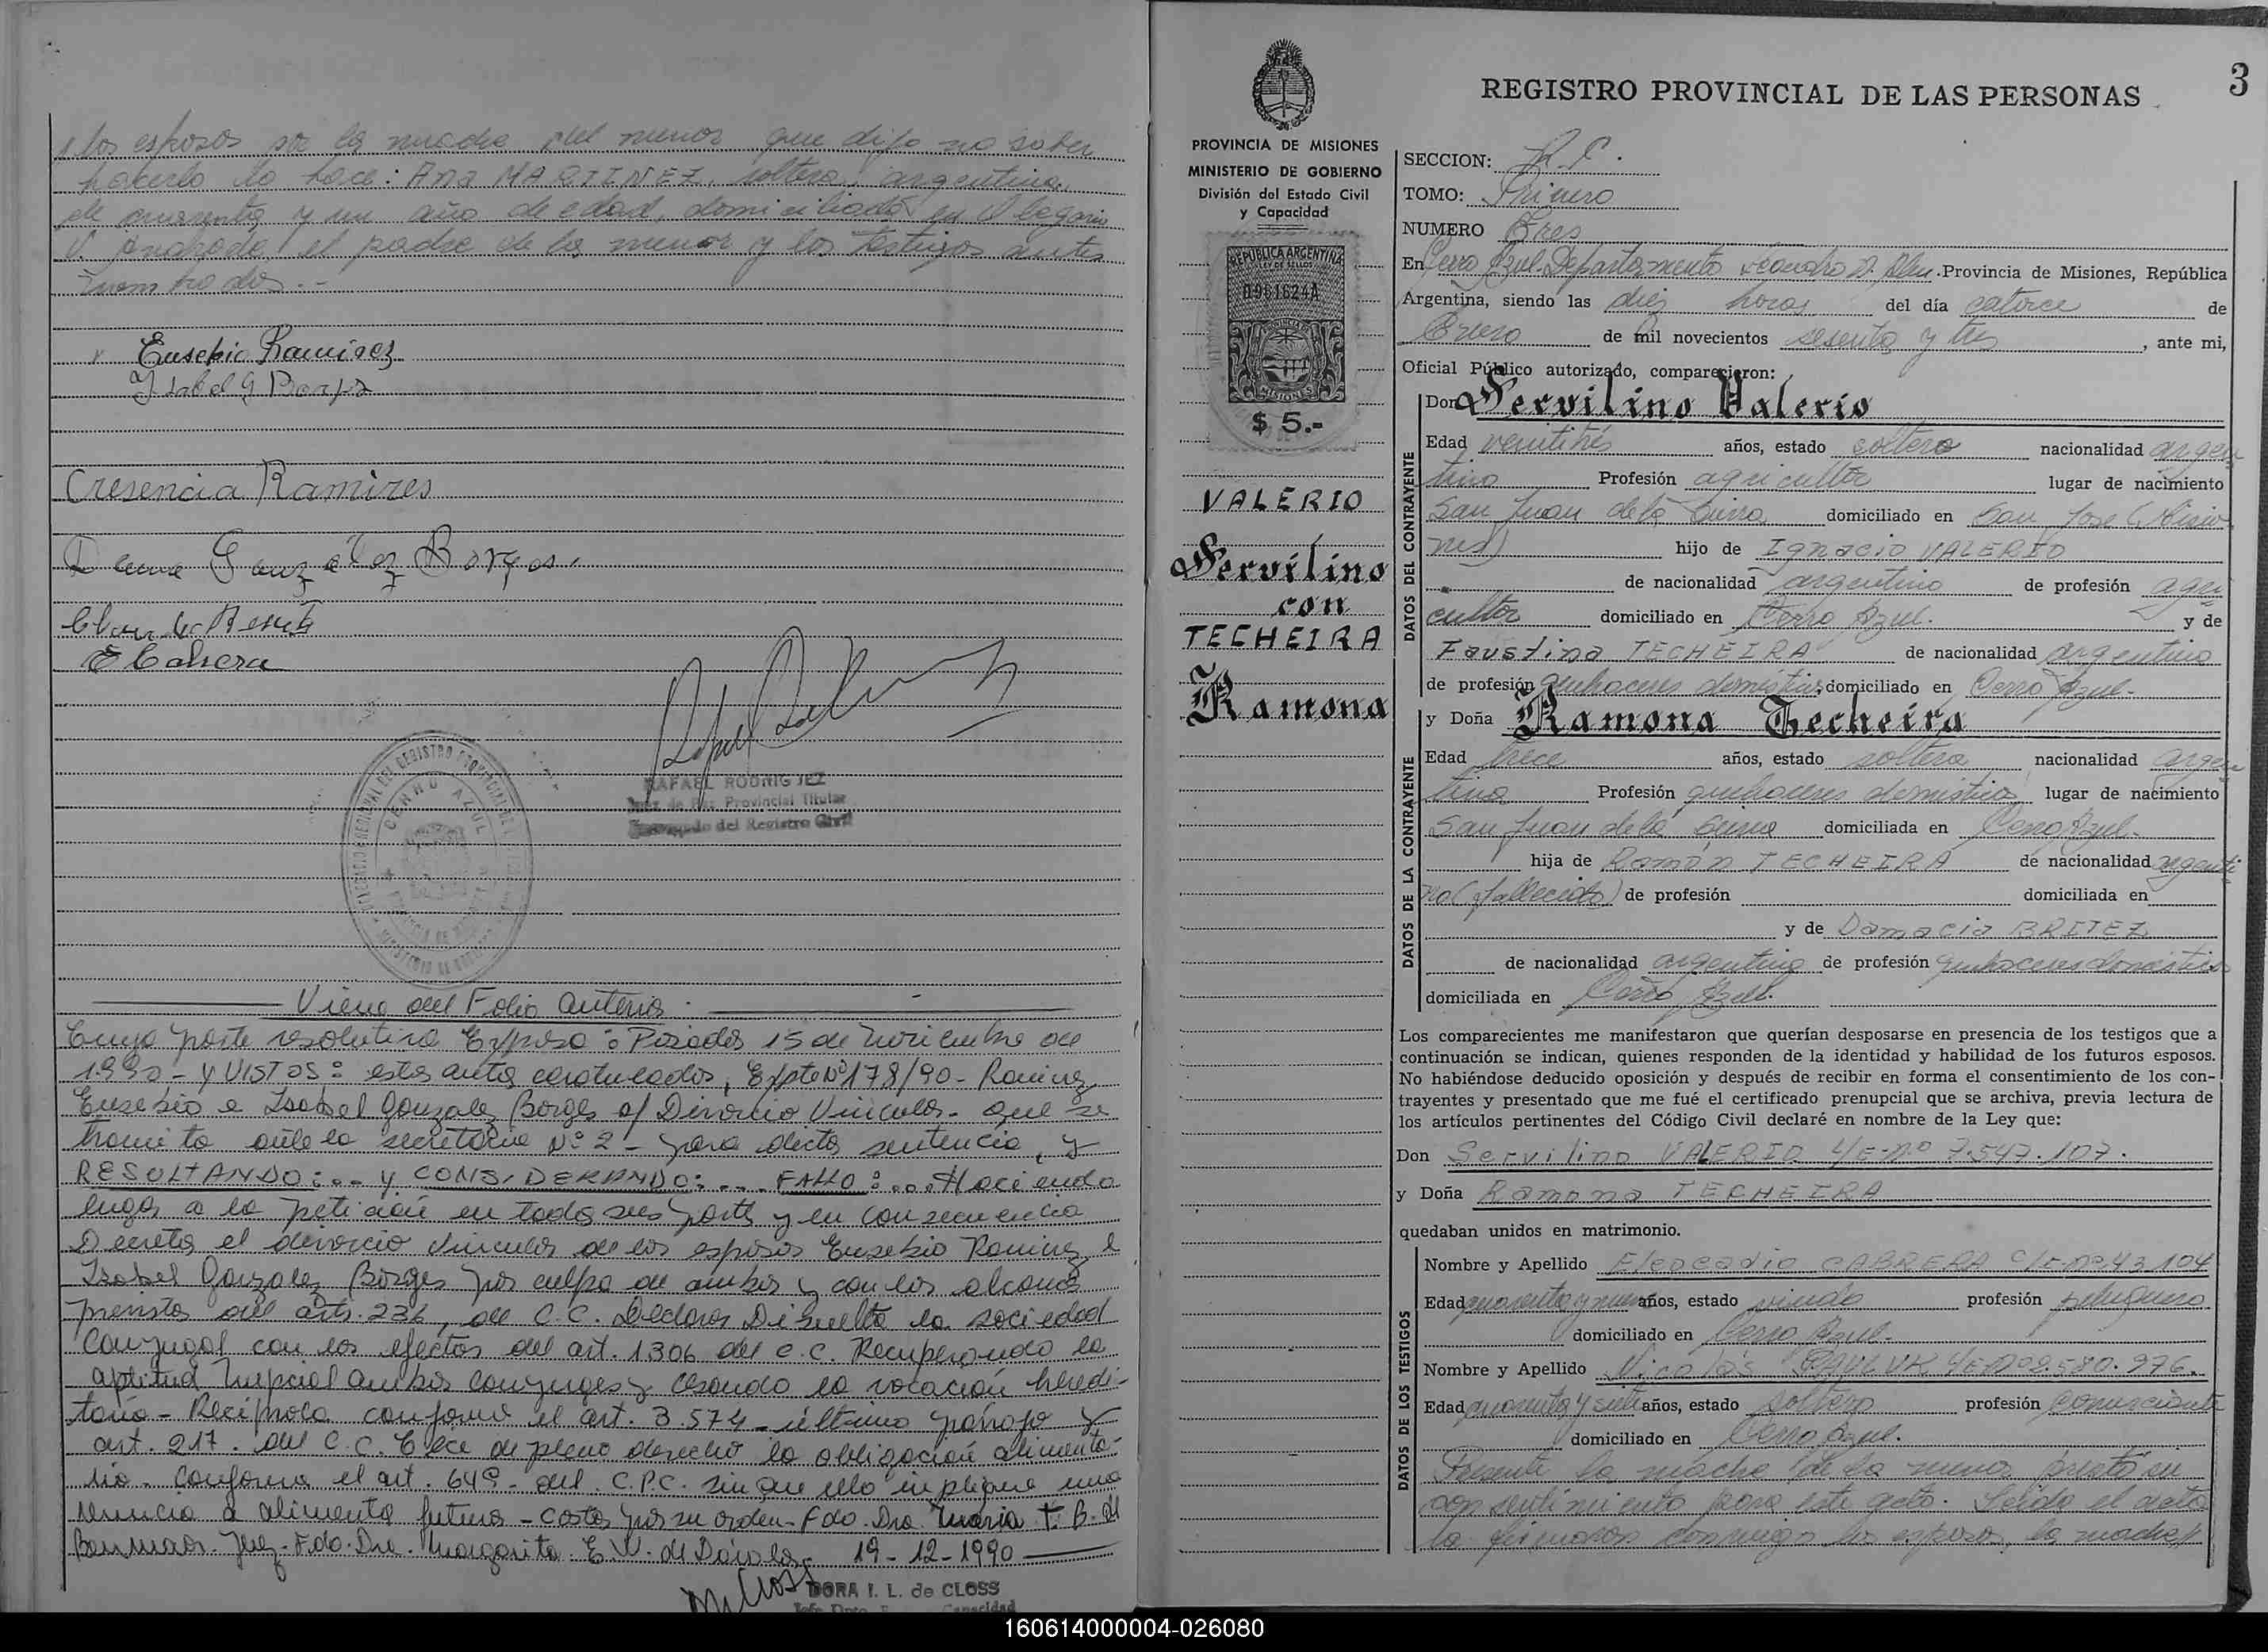 los esposos por la madre del menor que dijo no saber
hacerlo lo hace: Ana MARTINEZ, soltera, argentina,
de cuarenta y un año de edad, domiciliada en
el padre de la menor y los testigos antes
Eusebio Ramirez
Isabel G Borges
Cresencia Ramires
Borges
Cabrera
RAFAEL RODRIGUEZ
Juez de Paz Provincial Titular
Encargado del Registro Civil
CERRO AZUL
Viene del Folio anterior.
Cuya parte resolutiva Expresa: Posadas 15 de noviembre de
1990 - y VISTOS: estos autos caratulados, Expte Nº 178/90 - Ramirez
Eusebio e Isabel Gonzalez Borges s/ Divorcio Vincular - que se
tramita ante la secretaria Nº 2 - para dictar sentencia, y
RESULTANDO:... y CONSIDERANDO:.... FALLO:... Haciendo
lugar a la petición en todas sus partes y en consecuencia
Decretar el divorcio vincular de los esposos Eusebio Ramirez e
Isabel Gonzalez Borges por culpa de ambos y con los alcances
previstos del art. 236, del C.C. Declarar Disuelta la sociedad
conyugal con los efectos del art. 1306 del C.C. Recuperando la
aptitud nupcial ambos conyuges y cesando la vocación heredi-
taria - Recíproca conforme el art. 3.574 - último párrafo y
art. 217. del C.C. de pleno derecho la obligación alimenta-
ria - Conforme el art. 649 - del C.P.C. sin que ello implique una
renuncia a alimentos futuros - costas por su orden - Fdo. Dra. Maria T. B. de
Juez - Fdo. Dra. Margarita E. V. de Dávalos 19-12-1990
DORA I. L. de CLOSS
3
REGISTRO PROVINCIAL DE LAS PERSONAS
PROVINCIA DE MISIONES
MINISTERIO DE GOBIERNO
División del Estado Civil
y Capacidad
REPUBLICA ARGENTINA
LEY DE SELLOS
0961624A
MISIONES
$ 5.-
VALERIO
Servilino
con
TECHEIRA
Ramona
SECCION: R.C.
TOMO: Primero
NUMERO Tres
En Cerro Azul - Departamento Leandro N. Alem. Provincia de Misiones, República
Argentina, siendo las diez horas del día catorce de
Enero de mil novecientos sesenta y tres, ante mi,
Oficial Público autorizado, comparecieron:
DATOS DEL CONTRAYENTE
Don Servilino Valerio
Edad veintitrés años, estado soltero nacionalidad argen
tino Profesión agricultor lugar de nacimiento
San Juan de la Sierra domiciliado en San José (Misio
nes) hijo de Ignacio VALERIO
de nacionalidad argentino de profesión agri
cultor domiciliado en Cerro Azul. y de
Faustina TECHEIRA de nacionalidad argentina
de profesión quehaceres domésticos domiciliado en Cerro Azul.
DATOS DE LA CONTRAYENTE
y Doña Ramona Techeira
Edad trece años, estado soltera nacionalidad argen
tina Profesión quehaceres domésticos lugar de nacimiento
San Juan de la Sierra domiciliada en Cerro Azul.
hija de Ramón TECHEIRA de nacionalidad argenti
no (fallecido) de profesión domiciliada en
y de Damacia BRITEZ
de nacionalidad argentina de profesión quehaceres domésticos
domiciliada en Cerro Azul.
Los comparecientes me manifestaron que querían desposarse en presencia de los testigos que a
continuación se indican, quienes responden de la identidad y habilidad de los futuros esposos.
No habiéndose deducido oposición y después de recibir en forma el consentimiento de los con-
trayentes y presentado que me fué el certificado prenupcial que se archiva, previa lectura de
los artículos pertinentes del Código Civil declaré en nombre de la Ley que:
Don Servilino VALERIO L/E-Nº 7.547.107.
y Doña Ramona TECHEIRA
quedaban unidos en matrimonio.
DATOS DE LOS TESTIGOS
Nombre y Apellido Eleocadio CABRERA C/I-Nº 43.104
Edad cuarenta y nueve años, estado viudo profesión peluquero
domiciliado en Cerro Azul.
Nombre y Apellido Nicolás L/E-Nº 2.580.976.
Edad cuarenta y siete años, estado soltero profesión comerciante
domiciliado en Cerro Azul.
Presente la madre de la menor presta su
consentimiento para este acto. Leída el acta
la firmaron conmigo los esposos, la madre
160614000004-026080